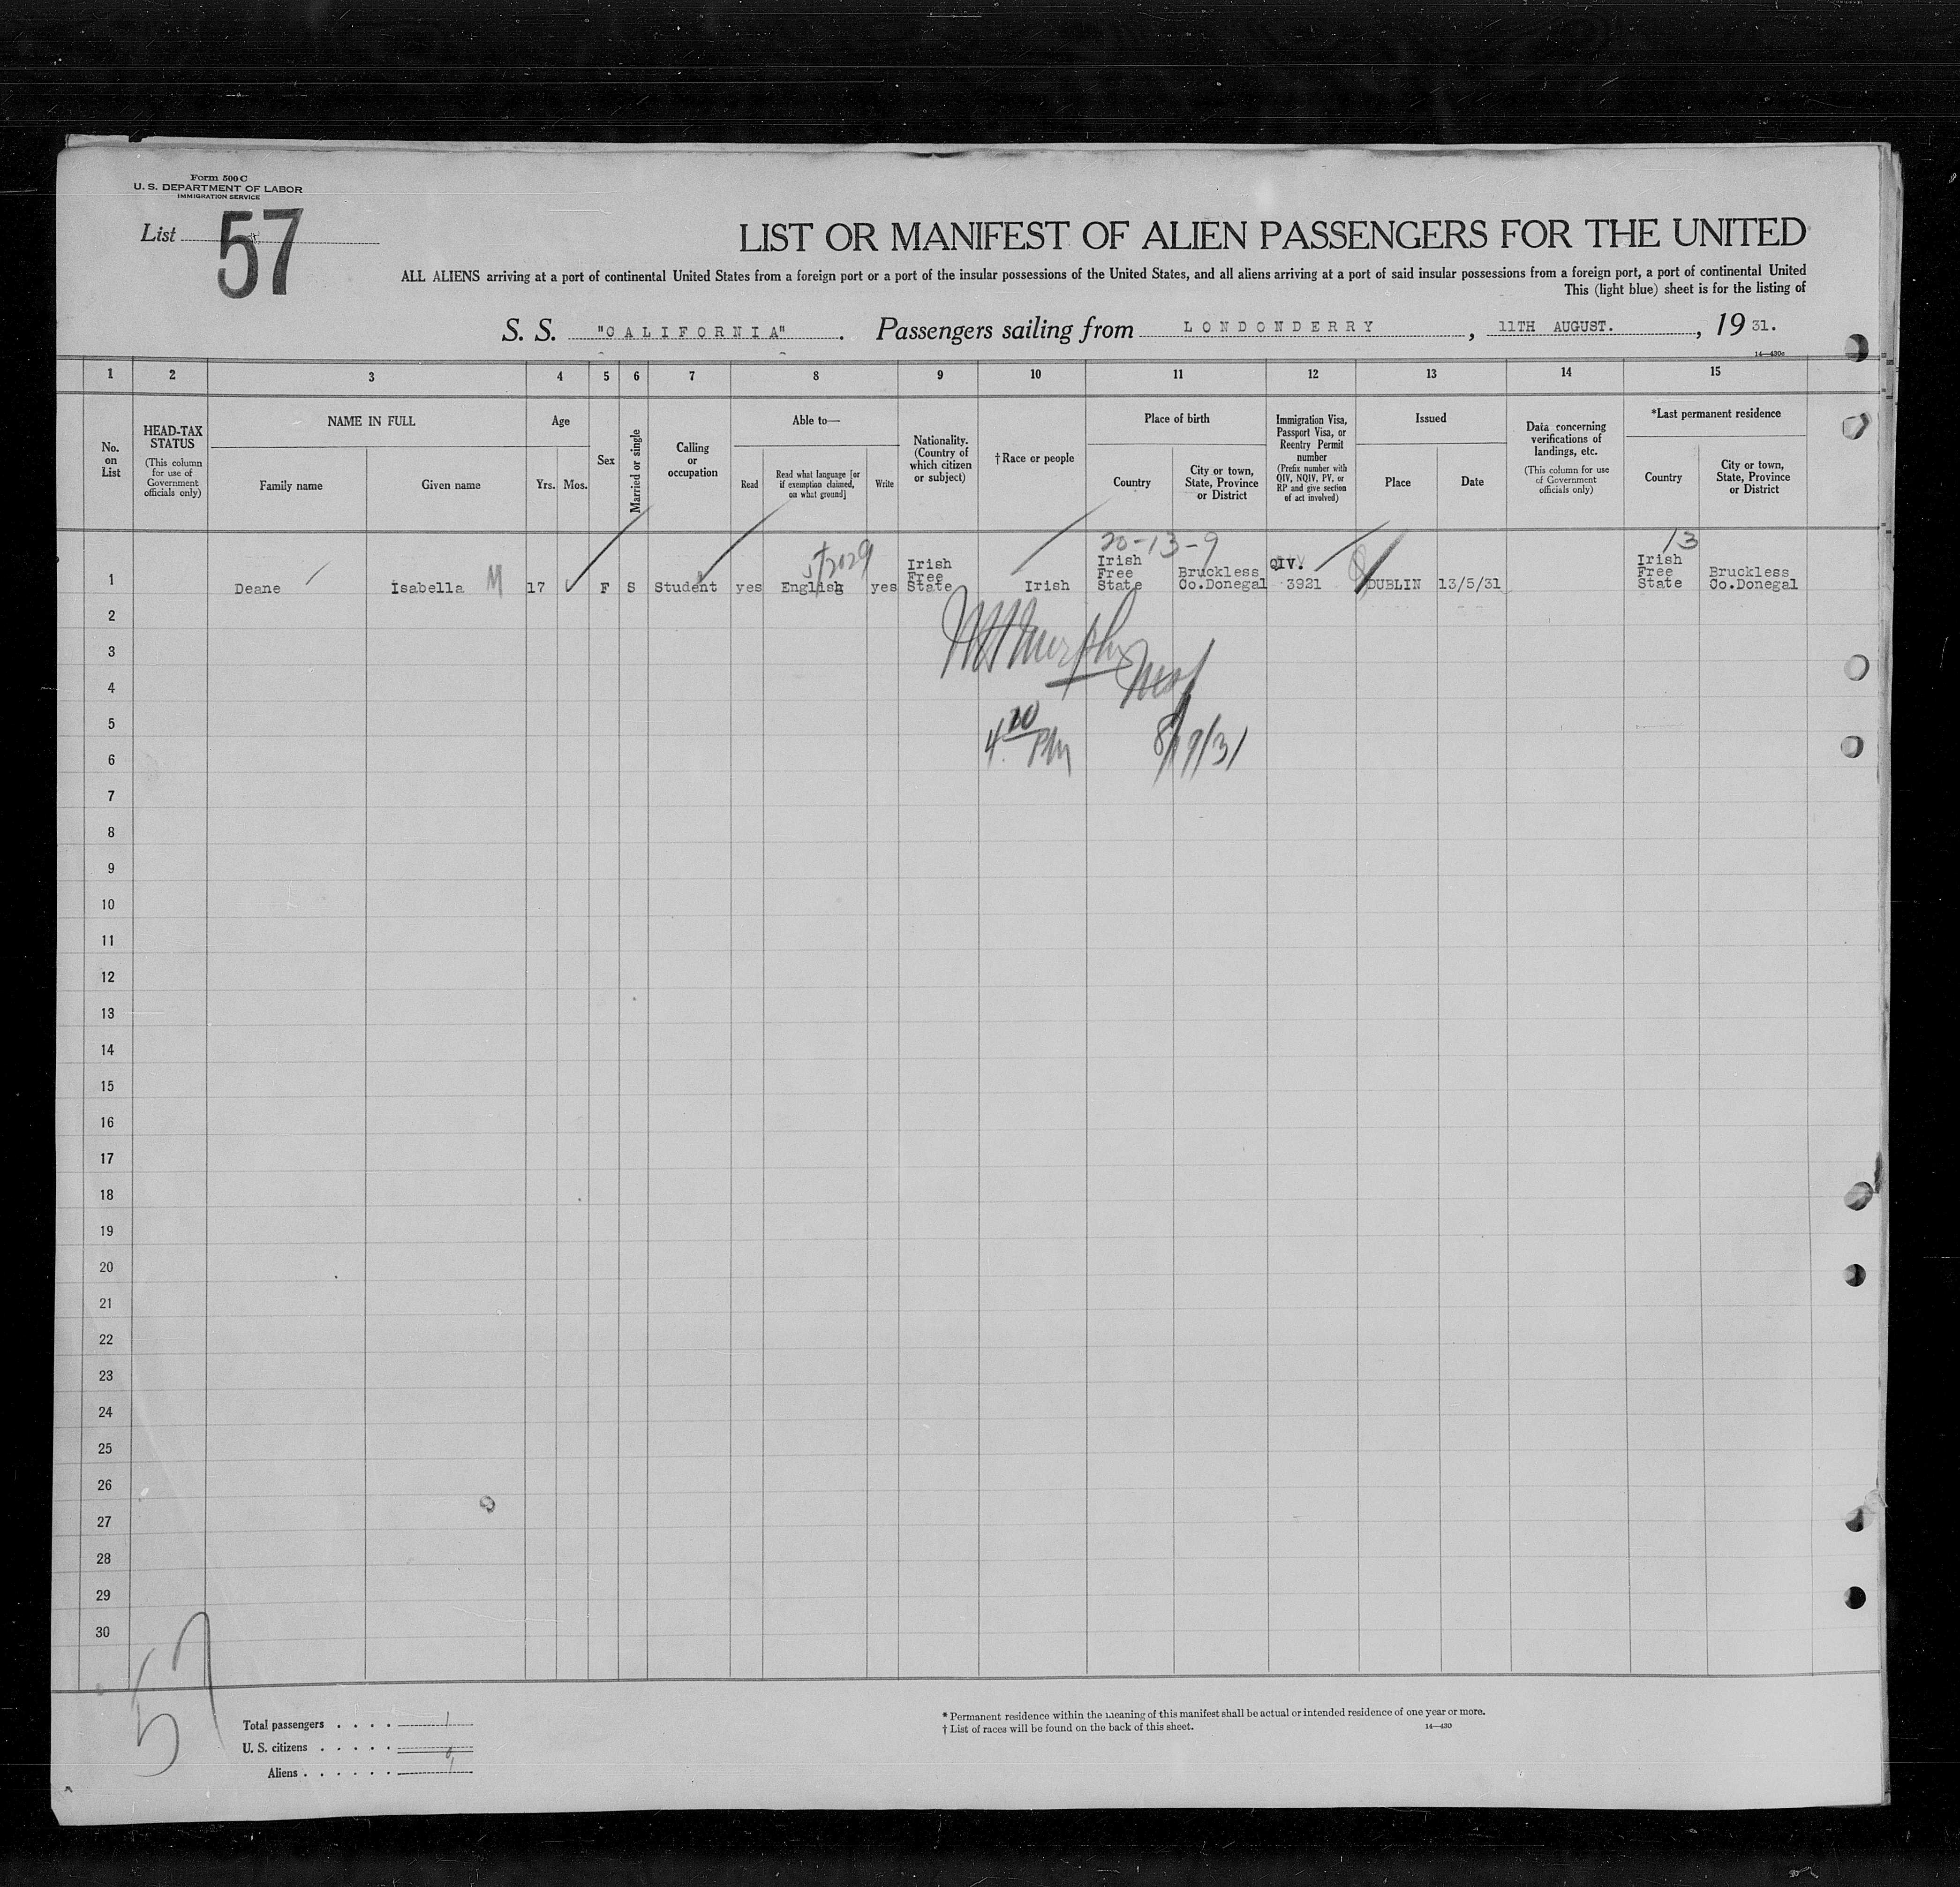 Form 500 C
U. S. DEPARTMENT OF LABOR
IMMIGRATION SERVICE
List 57
LIST OR MANIFEST OF ALIEN PASSENGERS FOR THE UNITED
ALL ALIENS arriving at a port of continental United States from a foreign port or a port of the insular possessions of the United States, and all aliens arriving at a port of said insular possessions from a foreign port, a port of continental United
This (light blue) sheet is for the listing of
S. S. "CALIFORNIA". Passengers sailing from LONDONDERRY, 11TH AUGUST., 19 31.
14—430c
1 2 3 4 5 6 7 8 9 10 11 12 13 14 15
No. on List
HEAD-TAX STATUS
(This column for use of Government officials only)
NAME IN FULL
Family name
Given name
Age
Yrs. Mos.
Sex
Married or single
Calling or occupation
Able to—
Read
Read what language [or if exemption claimed, on what ground]
Write
Nationality. (Country of which citizen or subject)
†Race or people
Place of birth
Country
City or town, State, Province or District
Immigration Visa, Passport Visa, or Reentry Permit number
(Prefix number with QIV, NQIV, PV, or RP and give section of act involved)
Issued
Place
Date
Data concerning verifications of landings, etc.
(This column for use of Government officials only)
*Last permanent residence
Country
City or town, State, Province or District
20-13-9
13
1 Deane Isabella M 17 F S Student yes English yes Irish Free State Irish Irish Free State Bruckless Co.Donegal QIV. 3921 DUBLIN 13/5/31 Irish Free State Bruckless Co.Donegal
2
3
Murphy
4
5
4 20 PM 8/19/31
6
7
8
9
10
11
12
13
14
15
16
17
18
19
20
21
22
23
24
25
26
27
28
29
30
57
Total passengers . . . . 1
U. S. citizens . . . . .
Aliens . . . . . . 1
* Permanent residence within the meaning of this manifest shall be actual or intended residence of one year or more.
† List of races will be found on the back of this sheet.
14—430